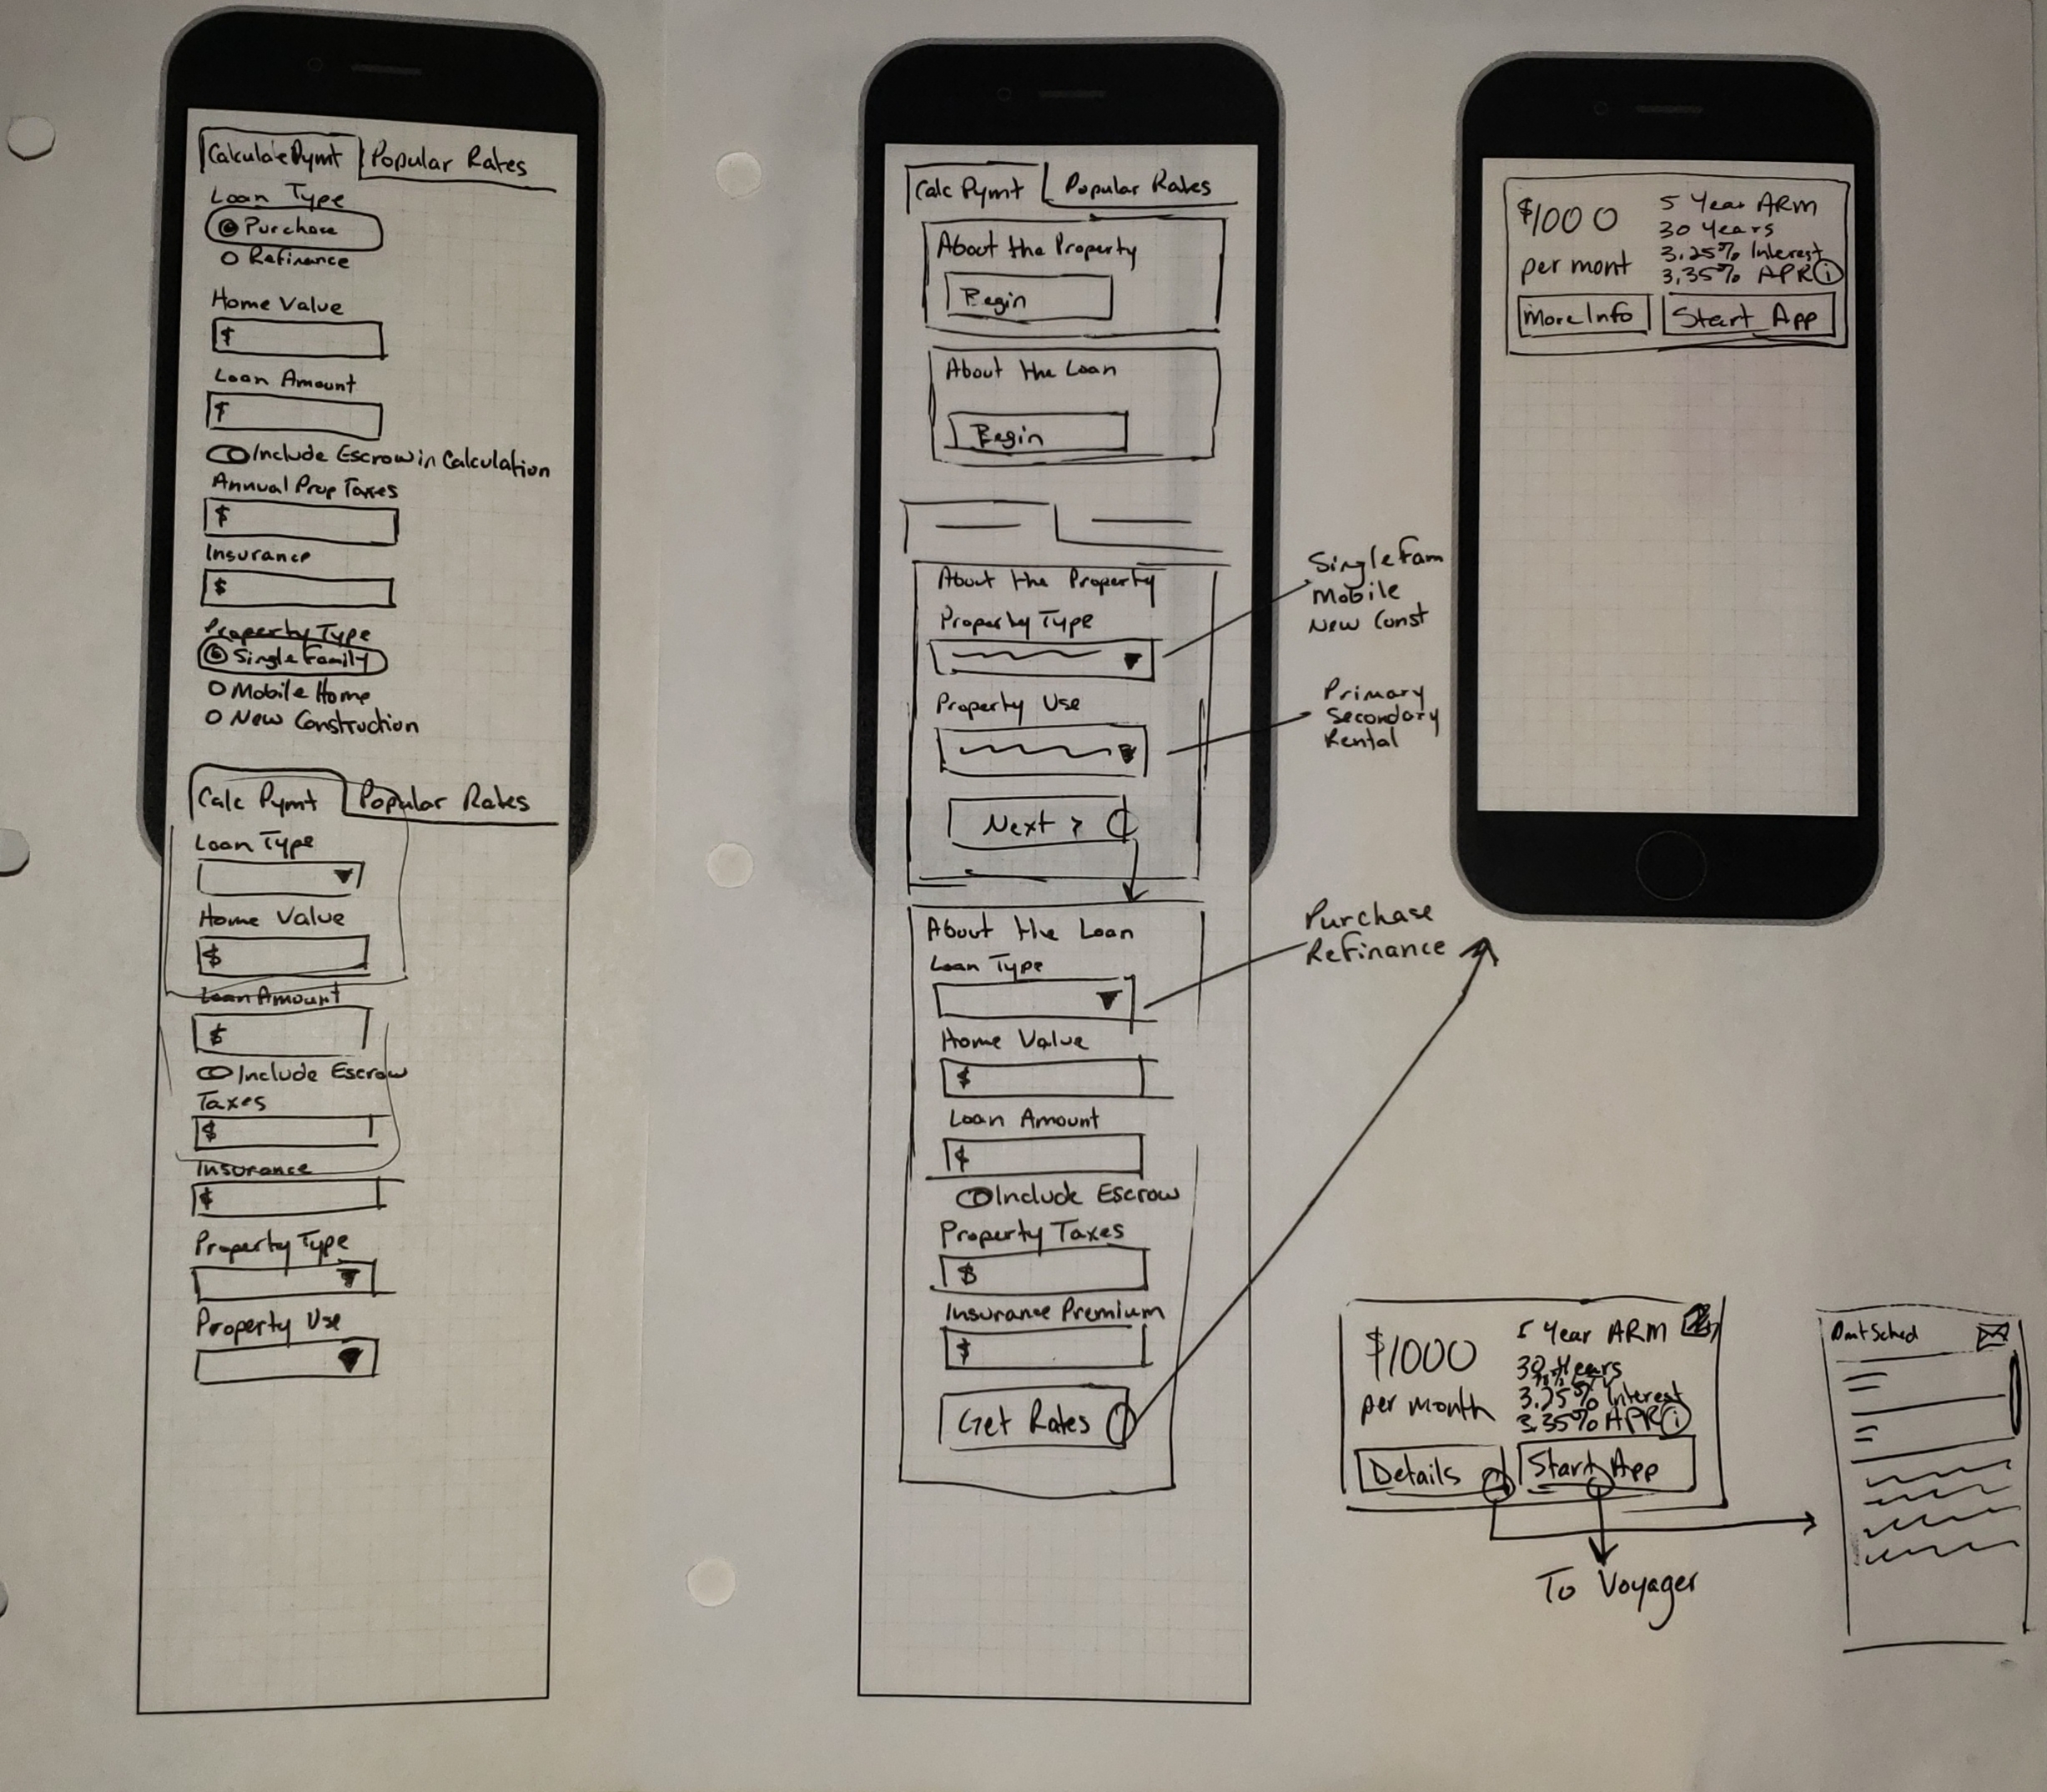 Calculate Pymt Popular Rates
Loan Type
Purchase
Refinance
Home Value
$
Loan Amount
$
Include Escrow in Calculation
Annual Prop Taxes
$
Insurance
$
Property Type
Single Family
Mobile Home
New Construction
Calc Pymt Popular Rates
Loan Type
Home Value
$
Loan Amount
$
Include Escrow
Taxes
$
Insurance
$
Property Type
Property Use
Calc Pymt Popular Rates
About the Property
Begin
About the Loan
Begin
About the Property
Property Type
Property Use
Next >
Single Fam
Mobile
New Const
Primary
Secondary
Rental
About the Loan
Loan Type
Purchase
Refinance
Home Value
$
Loan Amount
$
Include Escrow
Property Taxes
$
Insurance Premium
$
Get Rates
$1000
per mont
5 Year ARM
30 Years
3.25% Interest
3.35% APR i
More Info Start App
$1000
per month
5 Year ARM
30 Years
3.25% Interest
3.35% APR i
Details Start App
To Voyager
Sched